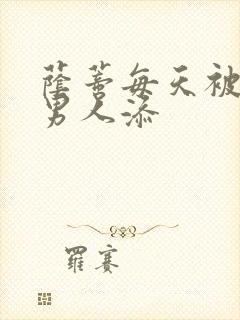 蔭蒂每天被
男人添
羅赛